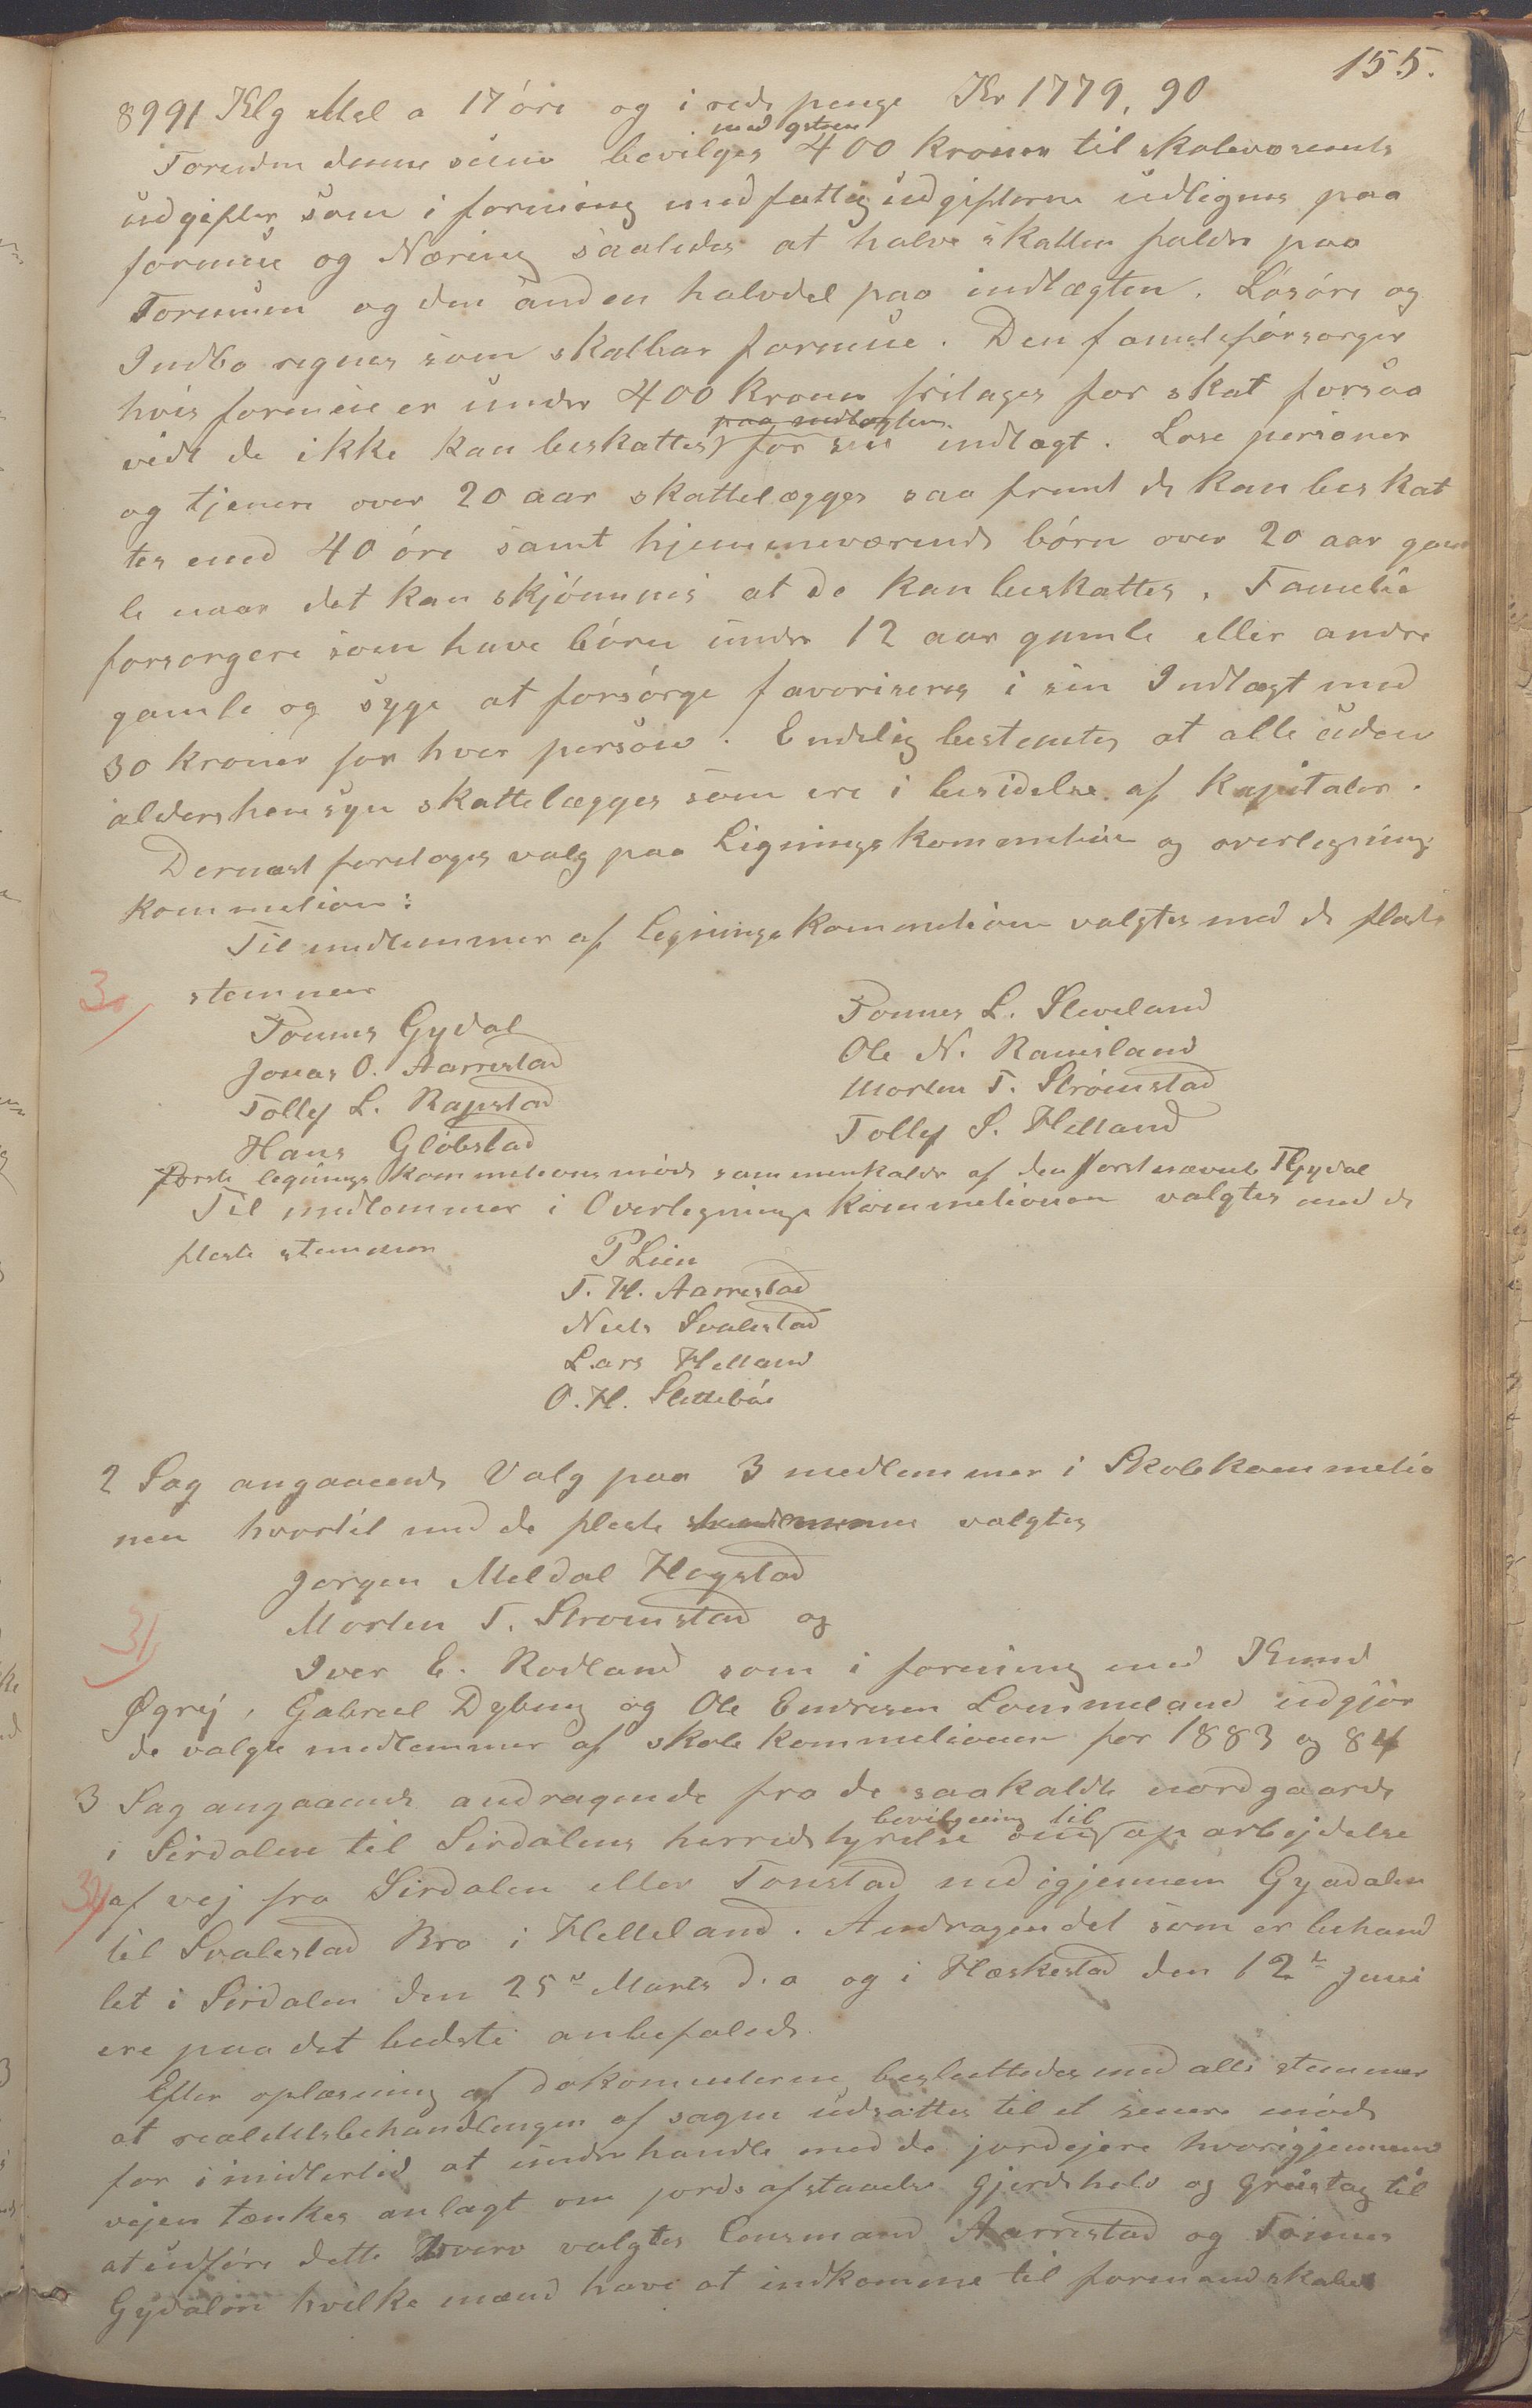 155.
8991 Klg Mel a 17 óre og i rede penge Kr 1779,90
med gstem
Foruden denne sum bevilges 400 kroner til skolevæsenets
udgifter som i forening med fattigudgifterne udlignes paa
formue og Næring saaledes at halve skatten falder paa
Formuen og den anden halvdel paa indtægten. Lósóre og
Indbo regnes som skatbar formue. Den familiefórsorger
hvis formue er under 400 kroner fritages for skat forsaa
paa indtægten
vidt de ikke kan beskattes for sin indtægt. Lose personer
og tjenere over 20 aar skattelægges saa fremt de kan beskat
tes med 40 óre samt hjemmeværende bórn over 20 aar gam
le naar det kan skjónnes at de kan beskattes. Familie
forsorgere som have bórn under 12 aar gamle eller andre
gamle og syge at forsórge favoriseres i sin Indtægt med
30 kroner for hver person. Endelig bestemtes at alle uden
aldershensyn skattelægges som ere i besidelse af Kapitaler.
Dernæst foretoges valg paa Ligningskommetion og overlegning
kommetion:
Til medlemmer af legningskommetionen valgtes med de fleste
30/ stemmer
Tonnes Gydal
Jonas O. Aarrestad
Tollef L. Rapstad
Hans Glóbstad
Tonnes L. Sleveland
Ole N. Ramsland
Morten T. Strómstad
Tollef S. Helland
Forste legnings kommetions móde sammenkalder af den forstnævnte T Gydal
Til medlemmer i Overlegnings kommetionen valgtes med de
fleste stemmer
P Lien
T. H. Aarrestad
Niels Svalestad
Lars Helland
O. H. Slettebóe
2 Sag angaaende Valg paa 3 medlemmer i Skolekommetio
nen hvortil med de fleste stemmer valgtes
Jorgen Meldal Hogstad
Morten T. Stromstad og
31/
Iver E. Rodland som i forening med Knud
Øgrej, Gabriel Dybing og Ole Endresen Lommeland udgjór
de valgte medlemmer af skole kommetionen for 1883 og 84
3 Sag angaaende andragende fra de saakaldte nordgaarde
bevilgning til
i Sirdalen til Sirdalens herredstyrelse om oparbejdelse
32/ af vej fra Sirdalen eller Tonstad ned igjennem Gyadalen
til Svalestad Bro i Helleland. Andragendet som er behand
let i Sirdalen den 25de Marts d. a og i Hæskestad den 12te Juni
ere paa det bedste anbefalede.
Efter oplæsning af dokomenterne besluttedes med alle stemmer
at realitetsbehandlingen af sagen udsættes til et senere móde
for imidlertid at underhandle med de jordejere hvorigjennem
vejen tænkes anlagt om jords afstaaelse gjerdehold og grustag til
at udfóre dette hverv valgtes Lensmand Aarrestad og Tonnes
Gydalen hvilke mænd have at indkomme til formandskabet